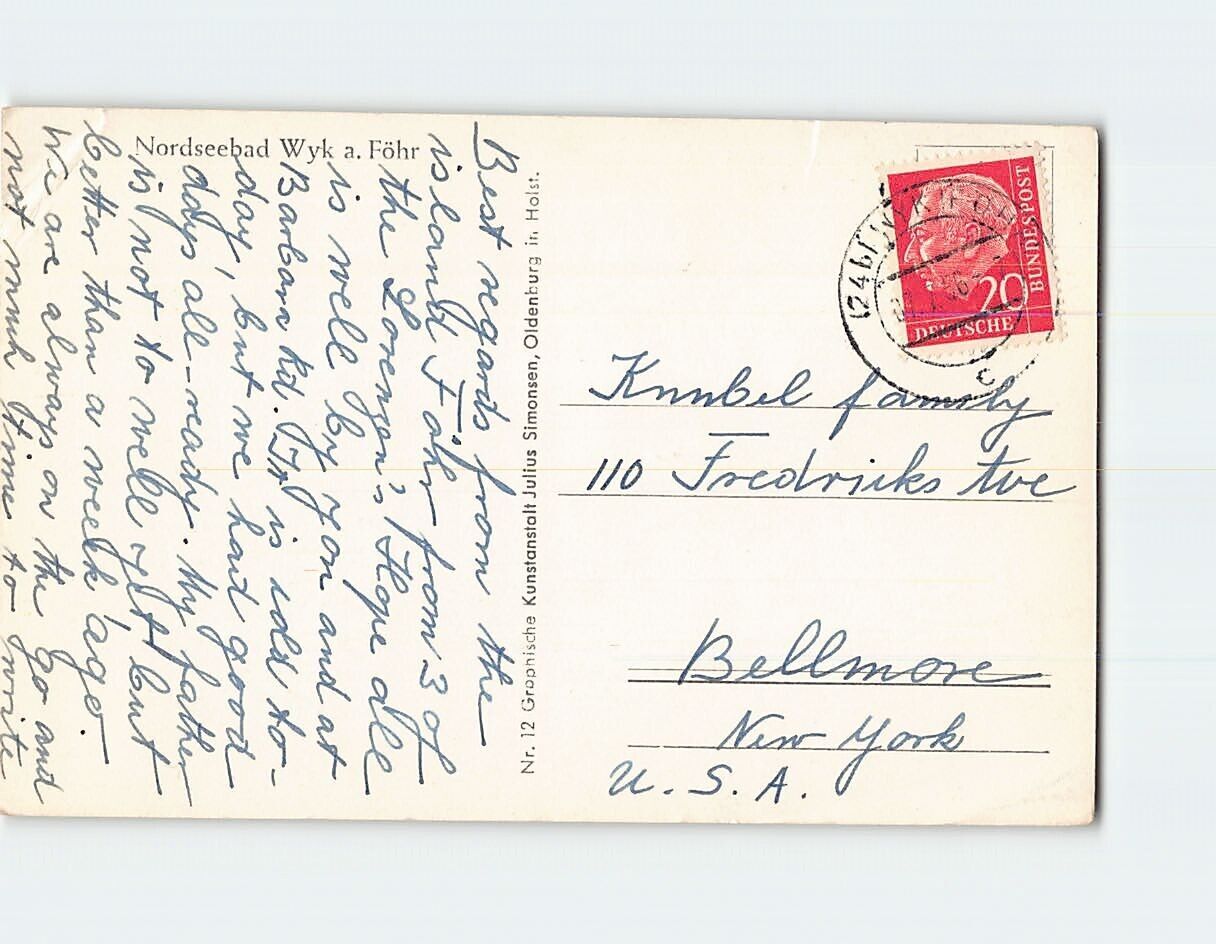 Nordseebad Wyk a. Föhr
Best regards from the
island Föhr from 3 of
the Lorenzen's. Hope all
is well by you and at
Barbara Rd. It is cold to-
day, but we had good
days all-ready. My father
is not to well yet but
better than a week ago
We are always on the go and
not much time to write
Nr. 12 Graphische Kunstanstalt Julius Simonsen, Oldenburg in Holst.
(24b) WYK (FÖHR)
c
20
DEUTSCHE
BUNDESPOST
Knubel family
110 Fredricks Ave
Bellmore
New York
U. S. A.